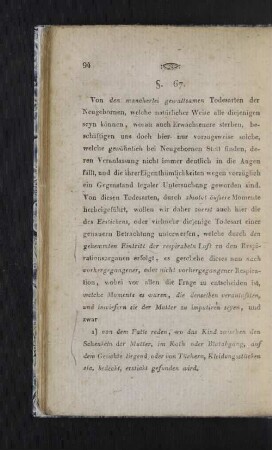 94
§. 67.
Von den mancherlei gewaltsamen Todesarten der
Neugebornen, welche natürlicher Weise alle diejenigen
seyn können, wovon auch Erwachsenere sterben, be-
schäftigen uns doch hier nur vorzugsweise solche,
welche gewöhnlich bei Neugebornen Statt finden, de-
ren Veranlassung nicht immer deutlich in die Augen
fällt, und die ihrer Eigenthümlichkeiten wegen vorzüglich
ein Gegenstand legaler Untersuchung geworden sind.
Von diesen Todesarten, durch absolut äussere Momente
herbeigeführt, wollen wir daher zuerst auch hier die
des Erstickens, oder vielmehr diejenige Todesart einer
genauen Betrachtung unterwerfen, welche durch den
gehemmten Eintritt der respirabeln Luft zu den Respi-
rationsorganen erfolgt, es geschehe dieses nun nach
vorhergegangener, oder nicht vorhergegangener Respira-
tion, wobei vor allen die Frage zu entscheiden ist,
welche Momente es waren, die denselben veranlassten,
und inwiefern sie der Mutter zu imputiren seyen, und
zwar
a) von dem Falle reden, wo das Kind zwischen den
Schenkeln der Mutter, im Koth oder Blutabgang, auf
dem Gesichte liegend oder von Tüchern, Kleidungsstücken
etc. bedeckt, erstickt gefunden wird.